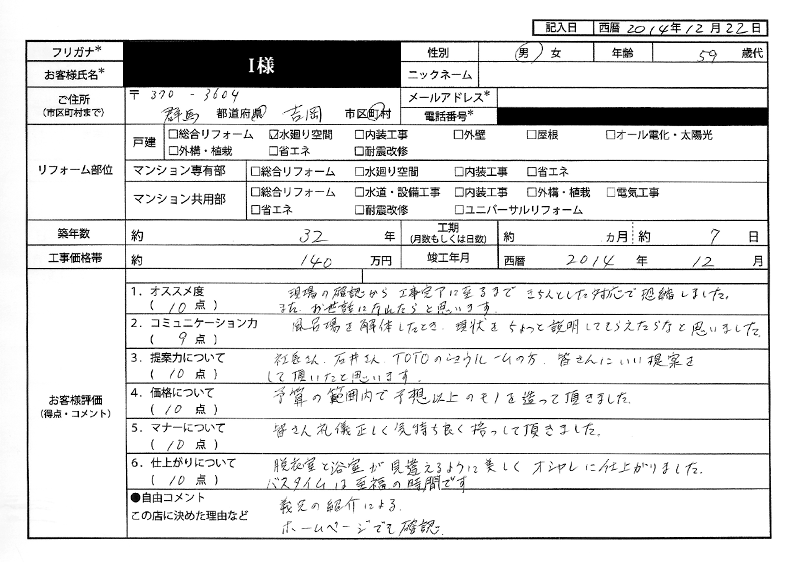 記入日 西暦 2014年12月22日
フリガナ* 性別 男 女 年齢 59 歳代
お客様氏名* I様 ニックネーム
ご住所 〒 370 - 3604 メールアドレス*
(市区町村まで) 群馬 都道府県 吉岡 市区町村 電話番号*
リフォーム部位
戸建 □総合リフォーム ☑水廻り空間 □内装工事 □外壁 □屋根 □オール電化・太陽光
□外構・植栽 □省エネ □耐震改修
マンション専有部 □総合リフォーム □水廻り空間 □内装工事 □省エネ
マンション共用部 □総合リフォーム □水道・設備工事 □内装工事 □外構・植栽 □電気工事
□省エネ □耐震改修 □ユニバーサルリフォーム
築年数 約 32 年 工期 (月数もしくは日数) 約 ヵ月 約 7 日
工事価格帯 約 140 万円 竣工年月 西暦 2014 年 12 月
お客様評価
(得点・コメント)
1. オススメ度 現場の確認から工事完了に至るまできちんとした対応で恐縮しました。
( 10 点 ) また、お世話になれたらと思います。
2. コミュニケーション力 風呂場を解体したとき、現状をちょっと説明してもらえたらなと思いました。
( 9 点 )
3. 提案力について 社長さん、石井さん、TOTOのショウルームの方、皆さんにいい提案を
( 10 点 ) して頂いたと思います。
4. 価格について 予算の範囲内で予想以上のモノを造って頂きました。
( 10 点 )
5. マナーについて 皆さん礼儀正しく気持ち良く接して頂きました。
( 10 点 )
6. 仕上がりについて 脱衣室と浴室が見違えるように美しくオシャレに仕上がりました。
( 10 点 ) バスタイムは至福の時間です
●自由コメント 義兄の紹介による。
この店に決めた理由など ホームページでも確認。